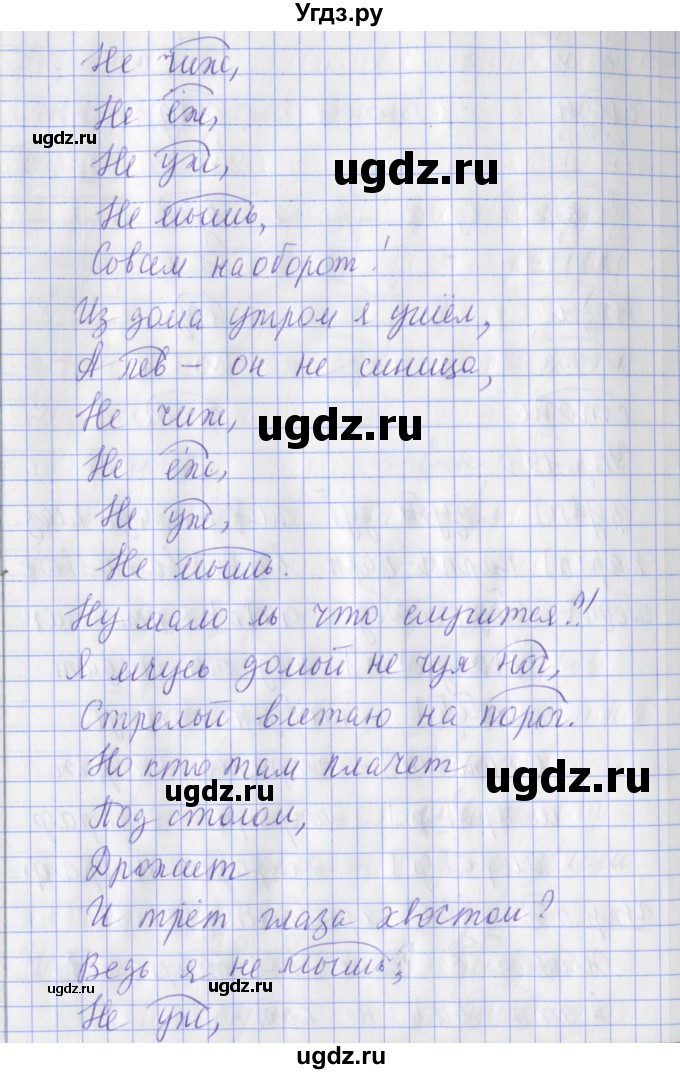 Угдз.ру
Не чиж,
Не ёж,
ugdz.ru
Не уж,
ugdz.ru
Не мышь,
Совсем наоборот!
Из дома утром я ушёл,
А лев – он не синица,
Не чиж,
ugdz.ru
Не ёж,
Не уж,
Не мышь.
Ну мало ль что случится?!
Я мчусь домой не чуя ног,
Стрелой влетаю на порог.
Но кто там плачет
ugdz.ru
ugdz.ru
Под столом,
Дрожит
И трёт глаза хвостом?
Ведь я не мышь,
ugdz.ru
ugdz.ru
Не уж,
ugdz.ru